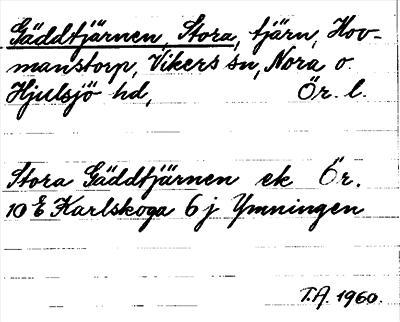 Gäddtjärnen, Stora, tjärn, Hov-
manstorp, Vikers sn, Nora o.
Hjulsjö hd, Ör. l.
Stora Gäddtjärnen ek Ör.
10 E Karlskoga 6 j Ymningen
T.A. 1960.